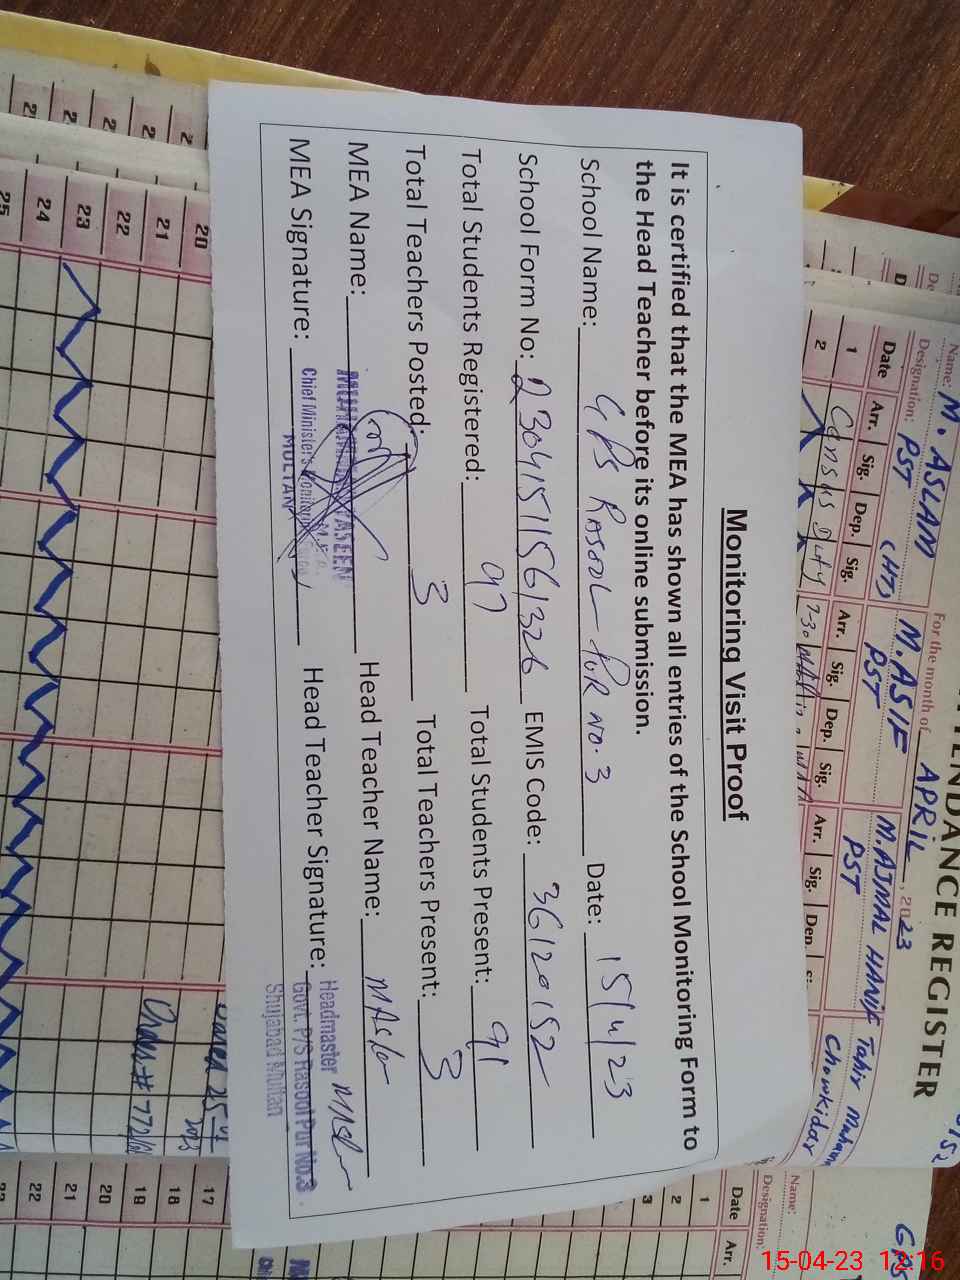 Monitoring Visit Proof
It is certified that the MEA has shown all entries of the School Monitoring Form to
the Head Teacher before its online submission.
School Name: GPS Rasool Pur No. 3 Date: 15/4/23
School Form No: 23041511561326 EMIS Code: 36120152
Total Students Registered: 97 Total Students Present: 91
Total Teachers Posted: 3 Total Teachers Present: 3
MEA Name: Head Teacher Name: MAslam
MEA Signature: Head Teacher Signature:
Chief Minister's Monitoring
MULTAN
Headmaster
Govt. P/S Rasool Pur No.3
Shujabad Multan
TENDANCE REGISTER
For the month of APRIL, 2023
Name: M. ASLAM M. ASIF M. AJMAL HANIF Tahir
Designation: PST (HT) PST PST Chowkidar
Date Arr. Sig. Dep. Sig. Arr. Sig. Dep. Sig. Arr. Sig. Dep.
1 Census Duty 7-30
2
20
21
22
23
24
25
Name:
Designation:
Date Arr.
1
2
3
17
18
19
20
21
22
23
15-04-23 12:16